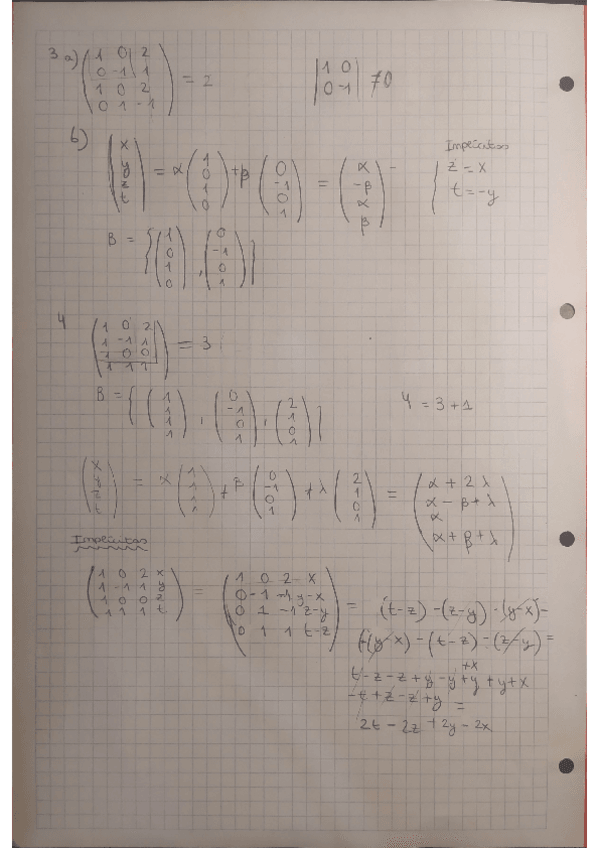 3 a) ( 1 0 2 ; 0 -1 1 ; 1 0 2 ; 0 1 -1 ) = 2 | 1 0 ; 0 -1 | ≠ 0
b) ( x ; y ; z ; t ) = α ( 1 ; 0 ; 1 ; 0 ) + β ( 0 ; -1 ; 0 ; 1 ) = ( α ; -β ; α ; β ) -
Implícitas
z = x
t = -y
B = { ( 1 ; 0 ; 1 ; 0 ) , ( 0 ; -1 ; 0 ; 1 ) }
4
( 1 0 2 ; 1 -1 1 ; 1 0 0 ; 1 1 1 ) = 3
B = { ( 1 ; 1 ; 1 ; 1 ) , ( 0 ; -1 ; 0 ; 1 ) , ( 2 ; 1 ; 0 ; 1 ) }
4 = 3 + 1
( x ; y ; z ; t ) = α ( 1 ; 1 ; 1 ; 1 ) + β ( 0 ; -1 ; 0 ; 1 ) + λ ( 2 ; 1 ; 0 ; 1 ) = ( α + 2λ ; α - β + λ ; α ; α + β + λ )
Implícitas
( 1 0 2 x ; 1 -1 1 y ; 1 0 0 z ; 1 1 1 t ) = ( 1 0 2 x ; 0 -1 -1 y-x ; 0 1 -1 z-y ; 0 1 1 t-z ) =
(t-z) - (z-y) - (y-x) -
-(y-x) - (t-z) - (z-y) =
t - z - z + y - y + y + y + x
+x
-t + z - z + y =
2t - 2z + 2y - 2x